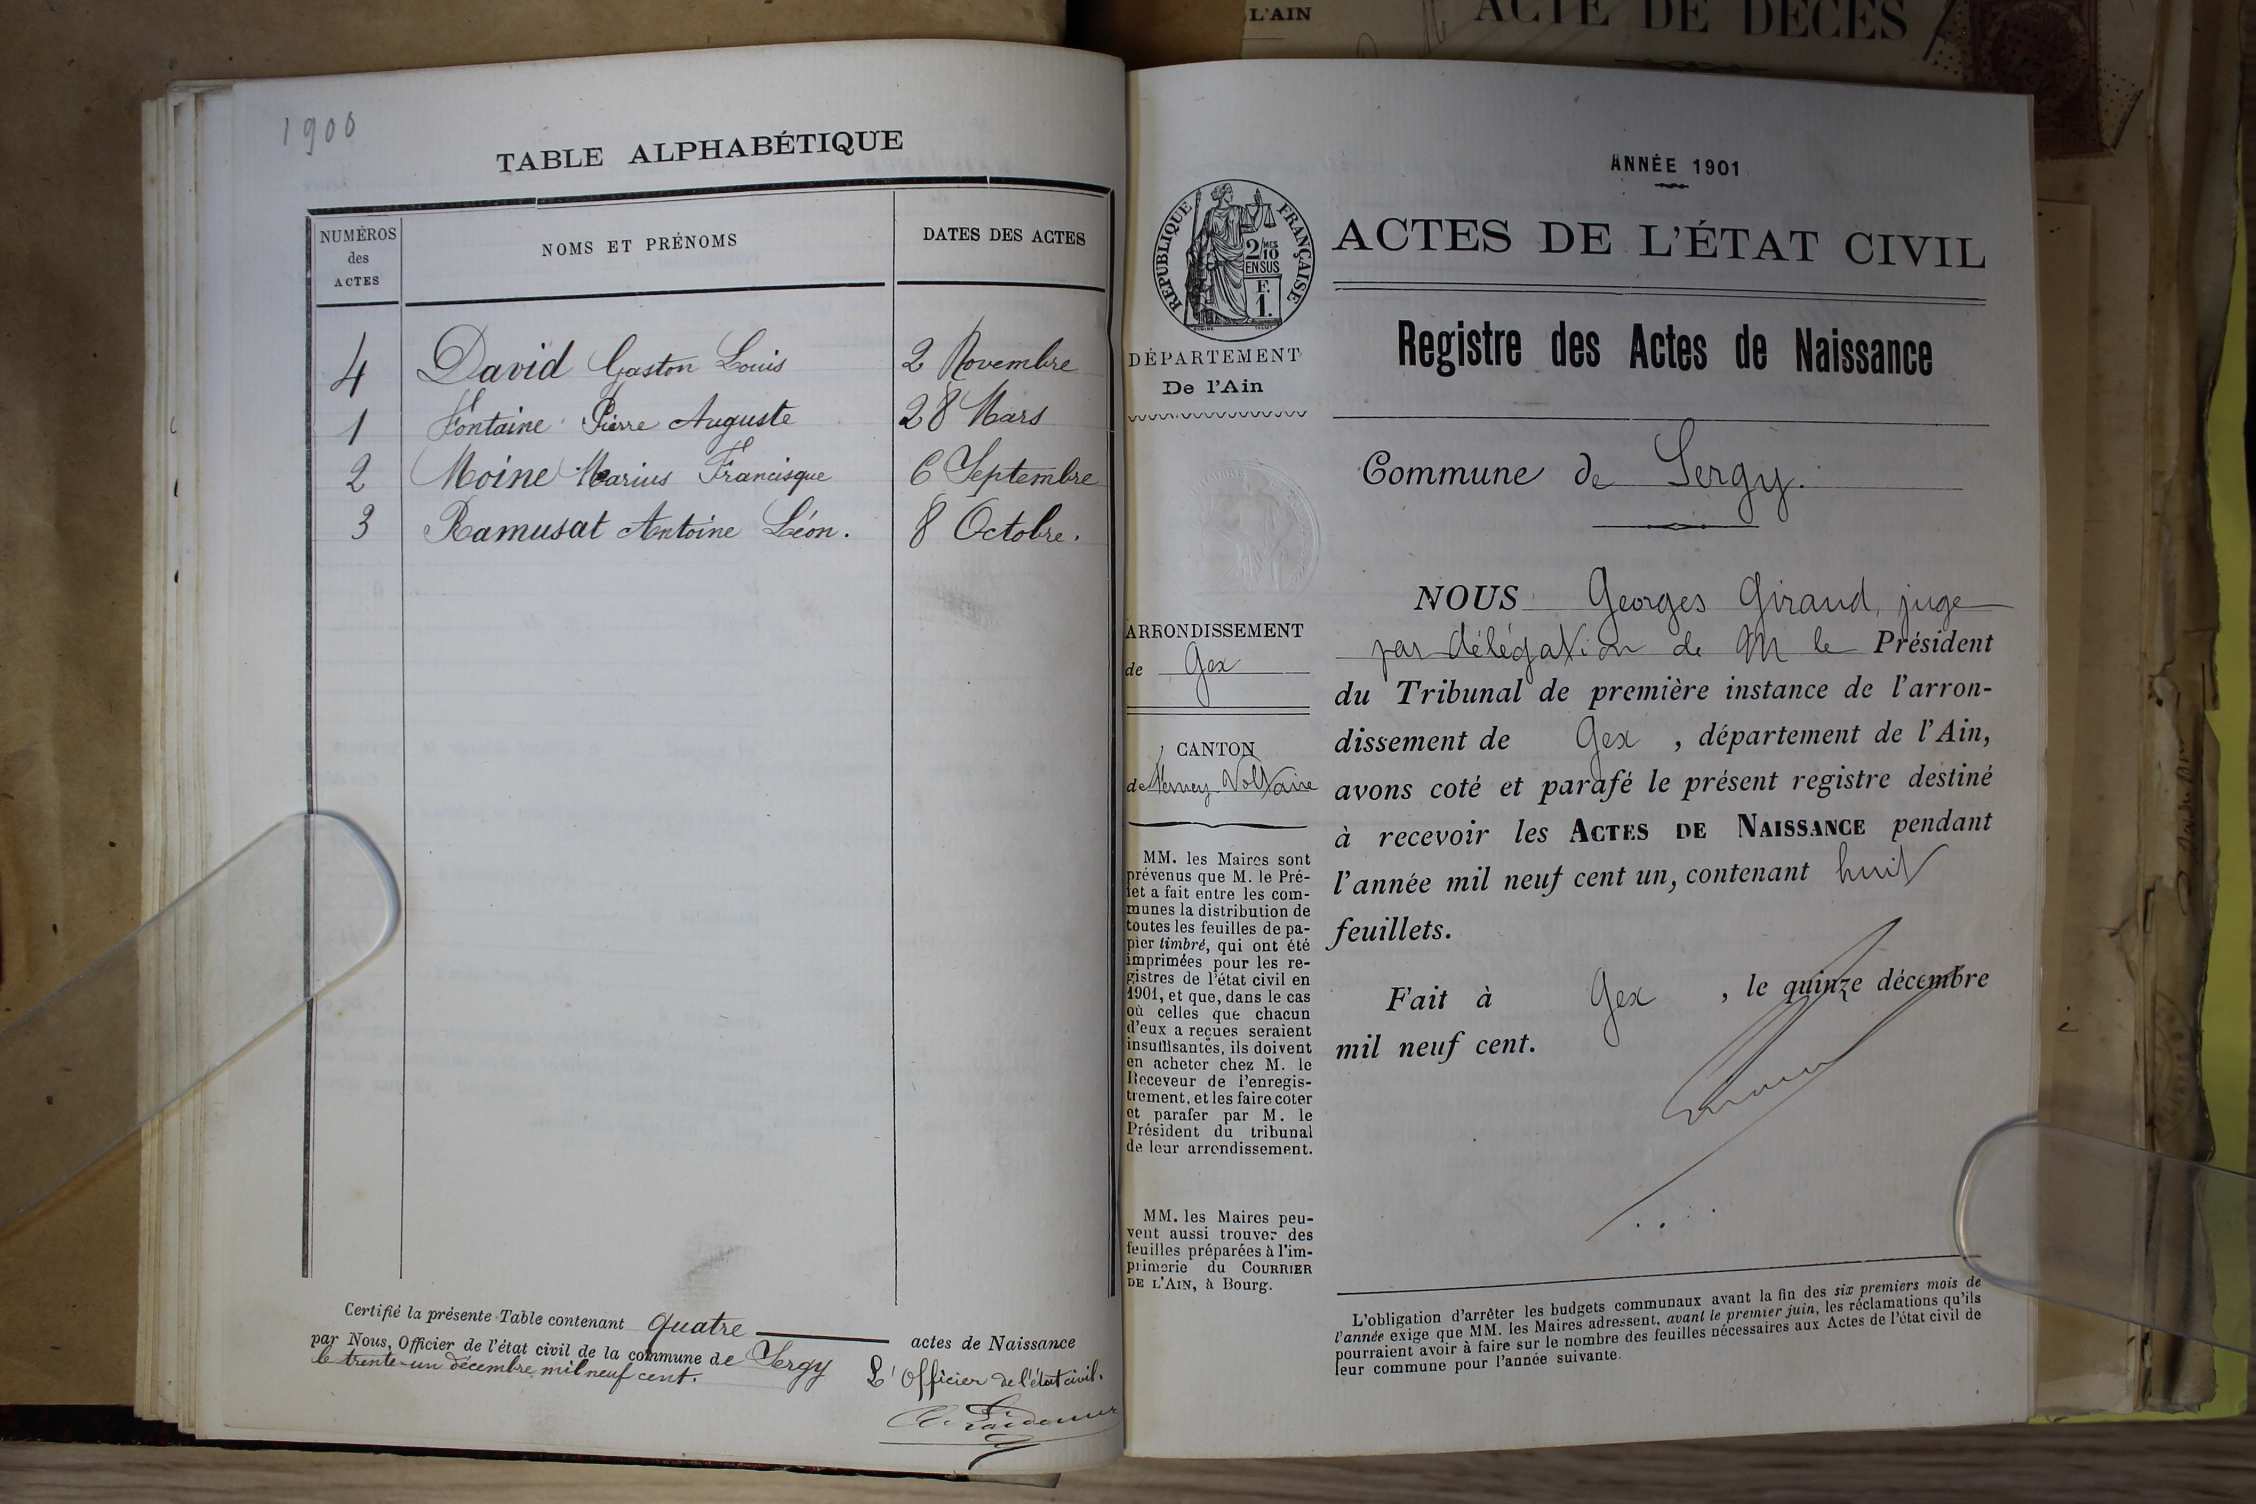 1900
TABLE ALPHABÉTIQUE
NUMÉROS
des
ACTES
NOMS ET PRÉNOMS
DATES DES ACTES
4 David Gaston Louis 2 Novembre
1 Fontaine Pierre Auguste 28 Mars
2 Moine Marius Francisque 6 Septembre
3 Ramusat Antoine Léon. 8 Octobre.
Certifié la présente Table contenant quatre actes de Naissance
par Nous, Officier de l'état civil de la commune de Sergy
le trente-un décembre mil neuf cent.
L'Officier de l'état civil.
L'AIN
ACTE DE DÉCÈS
ANNÉE 1901
RÉPUBLIQUE FRANÇAISE
2/10
EN SUS
F.
1.
ACTES DE L'ÉTAT CIVIL
DÉPARTEMENT
De l'Ain
Registre des Actes de Naissance
Commune de Sergy.
ARRONDISSEMENT
de Gex
CANTON
de Ferney Voltaire
MM. les Maires sont
prévenus que M. le Pré-
fet a fait entre les com-
munes la distribution de
toutes les feuilles de pa-
pier timbré, qui ont été
imprimées pour les re-
gistres de l'état civil en
1901, et que, dans le cas
où celles que chacun
d'eux a reçues seraient
insuffisantes, ils doivent
en acheter chez M. le
Receveur de l'enregis-
trement, et les faire coter
et parafer par M. le
Président du tribunal
de leur arrondissement.
MM. les Maires peu-
vent aussi trouver des
feuilles préparées à l'im-
primerie du COURRIER
DE L'AIN, à Bourg.
NOUS Georges Giraud, juge
par délégation de M le Président
du Tribunal de première instance de l'arron-
dissement de Gex, département de l'Ain,
avons coté et parafé le présent registre destiné
à recevoir les ACTES DE NAISSANCE pendant
l'année mil neuf cent un, contenant huit
feuillets.
Fait à Gex, le quinze décembre
mil neuf cent.
L'obligation d'arrêter les budgets communaux avant la fin des six premiers mois de
l'année exige que MM. les Maires adressent, avant le premier juin, les réclamations qu'ils
pourraient avoir à faire sur le nombre des feuilles nécessaires aux Actes de l'état civil de
leur commune pour l'année suivante.